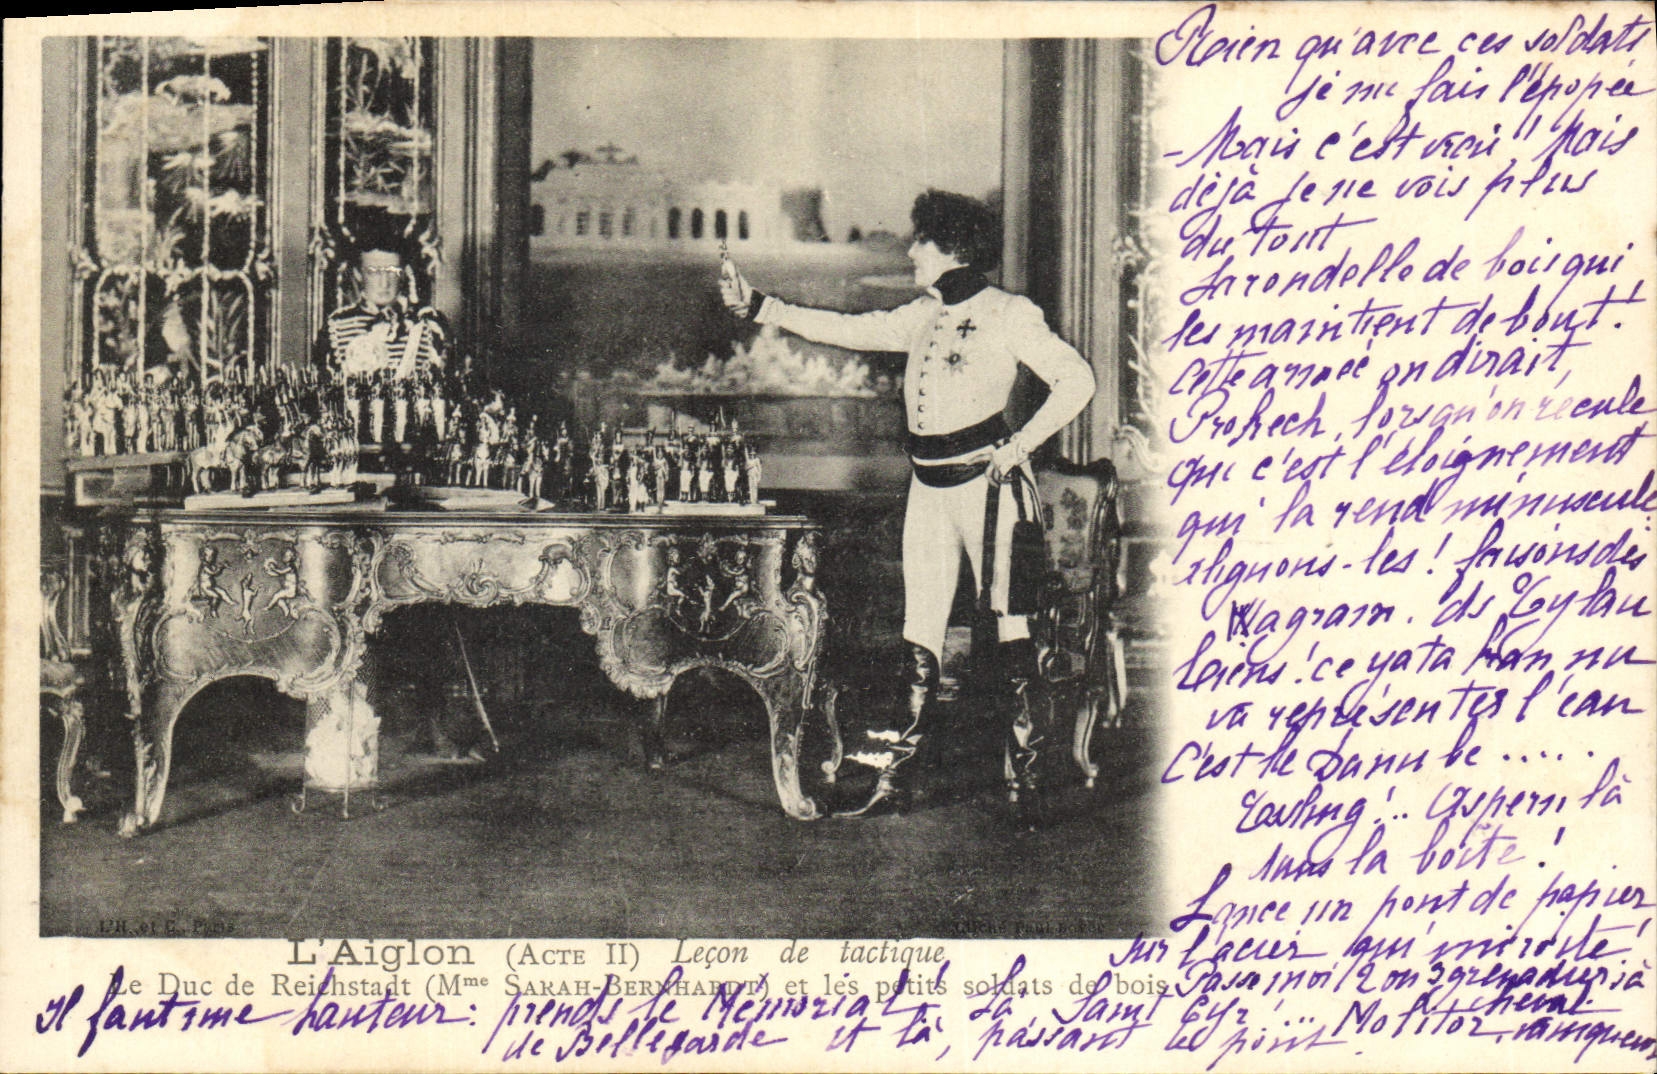 Rien qu'avec ces soldats
je me fais l'épopée
- Mais c'est vrai! Mais
déjà je ne vois plus
du tout
La rondelle de bois qui
les maintient debout!
Cette armée on dirait,
Prokech, lorsqu'on recule
que c'est l'éloignement
qui la rend minuscule
alignons-les! faisons des
Wagram. ds Eylau
tiens! ce yatahan nu
va représenter l'eau
C'est le Danube .....
Essling!.. Aspern là
dans la boite!
Lance un pont de papier
sur l'acier qui miroite!
Passe moi 2 ou 3 grenadiers à
cheval.
L'H. et C., Paris
Cliché Paul Boyer
L'Aiglon (Acte II) Leçon de tactique
Le Duc de Reichstadt (Mme Sarah-Bernhardt) et les petits soldats de bois
Il faut une hauteur: prends le Mémorial! Là Saint Cyr!... Molitor, vainqueur
de Bellegarde et là, passant le pont